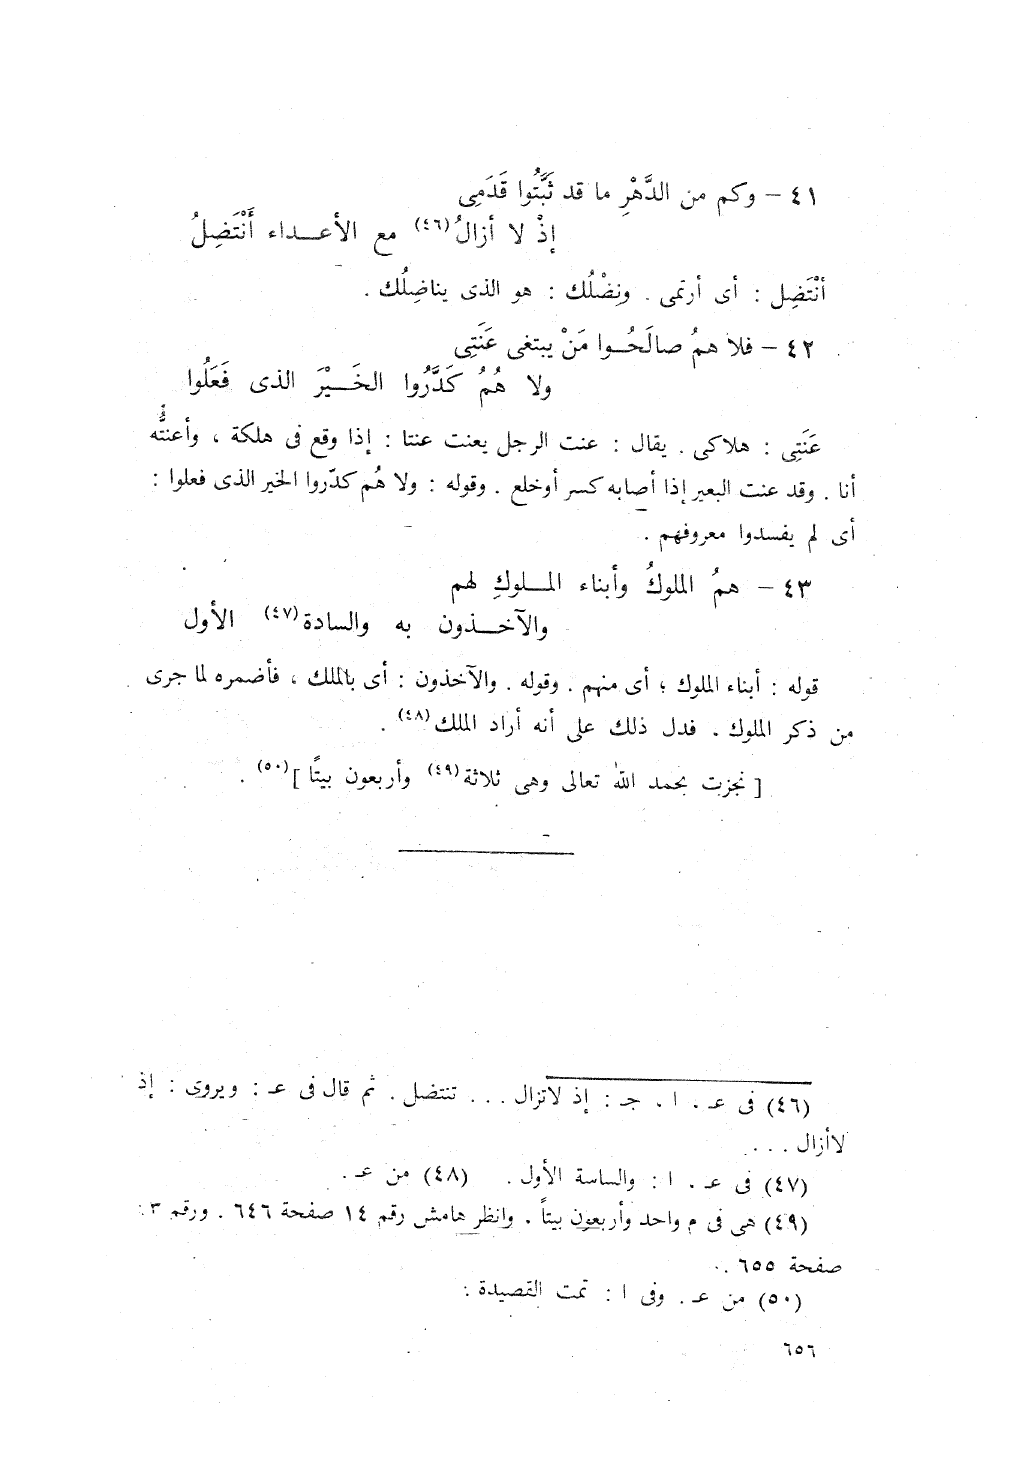 ٤١ – وكم من الدَّهْرِ ما قد ثَبَّتُوا قَدَمِى
إذْ لا أزالُ (٤٦) مع الأعـــداء أَنْتَضِلُ
أنْتَضِل : أى أرتمى . ونِضْلُك : هو الذى يناضِلُك .
٤٢ – فلا همُ صالَحُــوا مَنْ يبتغى عَنَتِى
ولا هُمُ كَدَّرُوا الخَـــيْرَ الذى فَعَلُوا
عَنَتِى : هلاكى . يقال : عنت الرجل يعنت عنتا : إذا وقع فى هلكة ، وأعنتُّه
أنا . وقد عنت البعير إذا أصابه كسر أوخلع . وقوله : ولا هُم كدّروا الخير الذى فعلوا :
أى لم يفسدوا معروفهم .
٤٣ – همُ الملوكُ وأبناء المـــلوكِ لهم
والآخـــذون به والسادة (٤٧) الأول
قوله : أبناء الملوك ؛ أى منهم . وقوله . والآخذون : أى بالملك ، فأضمره لما جرى
من ذكر الملوك . فدل ذلك على أنه أراد الملك (٤٨) .
[ نجزت بحمد الله تعالى وهى ثلاثة (٤٩) وأربعون بيتًا ] (٥٠) .
(٤٦) فى عـ . ا . جـ : إذ لاتزال . . . تنتضل . ثم قال فى عـ : ويروى : إذ
لاأزال . . .
(٤٧) فى عـ . ا : والساسة الأول . (٤٨) من عـ .
(٤٩) هى فى م واحد وأربعون بيتاً . وانظر هامش رقم ١٤ صفحة ٦٤٦ . ورقم ٣ :
صفحة ٦٥٥ .
(٥٠) من عـ . وفى ا : تمت القصيدة :
٦٥٦